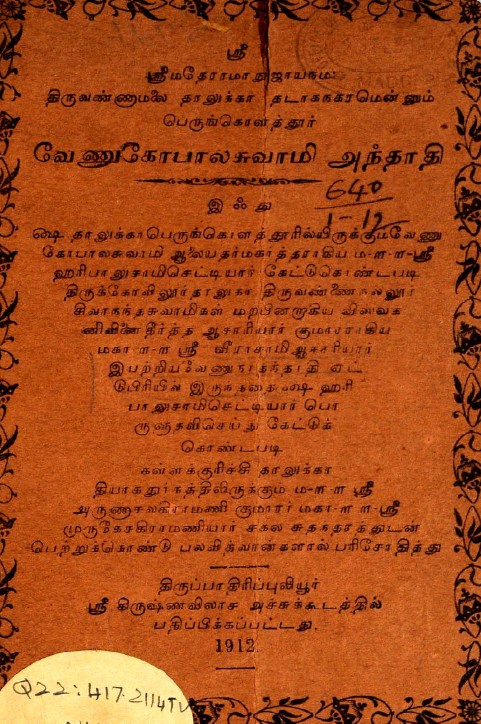 ஸ்ரீ
ஸ்ரீமதேராமாநுஜாயநம:
திருவண்ணாமலை தாலுக்கா தடாகநகரமென்னும்
பெருங்கொளத்தூர்
வேணுகோபாலசுவாமி அந்தாதி
640
1-12
இஃது
ஷை தாலுக்காபெருங்கொளத்தூரிலிருக்கும்வேணு
கோபாலசுவாமி ஆலையதர்மகர்த்தராகிய ம-ள-ள-ஸ்ரீ
ஹரிபாலுசாமிசெட்டியார் கேட்டுகொண்டபடி
திருக்கோவிலூர்தாலுகா திருவண்ணைநல்லூர்
சிவாநந்தசுவாமிகள் மறபினராகிய விஸ்வக
ஆசாரியார் குமாரராகிய
மகா-ள-ள ஸ்ரீ வீராசாமிஆசாரியார்
இயற்றிய
இருந்ததை ஷை ஹரி
பாலுசாமிசெட்டியார் பொ
ருளுதவிசெய்து கேட்டுக்
கொண்டபடி
கள்ளக்குரிச்சி தாலுக்கா
தியாகதுர்கத்திலிருக்கும் ம-ள-ள ஸ்ரீ
அருணாசலகிராமணி குமாரர் மகா-ள-ள-ஸ்ரீ
முருகேசகிராமணியார் சகல சுதந்தரத்துடன்
பெற்றுக்கொண்டு பலவித்வான்களால் பரிசோதித்து
திருப்பாதிரிப்புலியூர்
ஸ்ரீ கிருஷ்ணவிலாச அச்சுக்கூடத்தில்
பதிப்பிக்கப்பட்டது.
1912.
Q22:417.2114